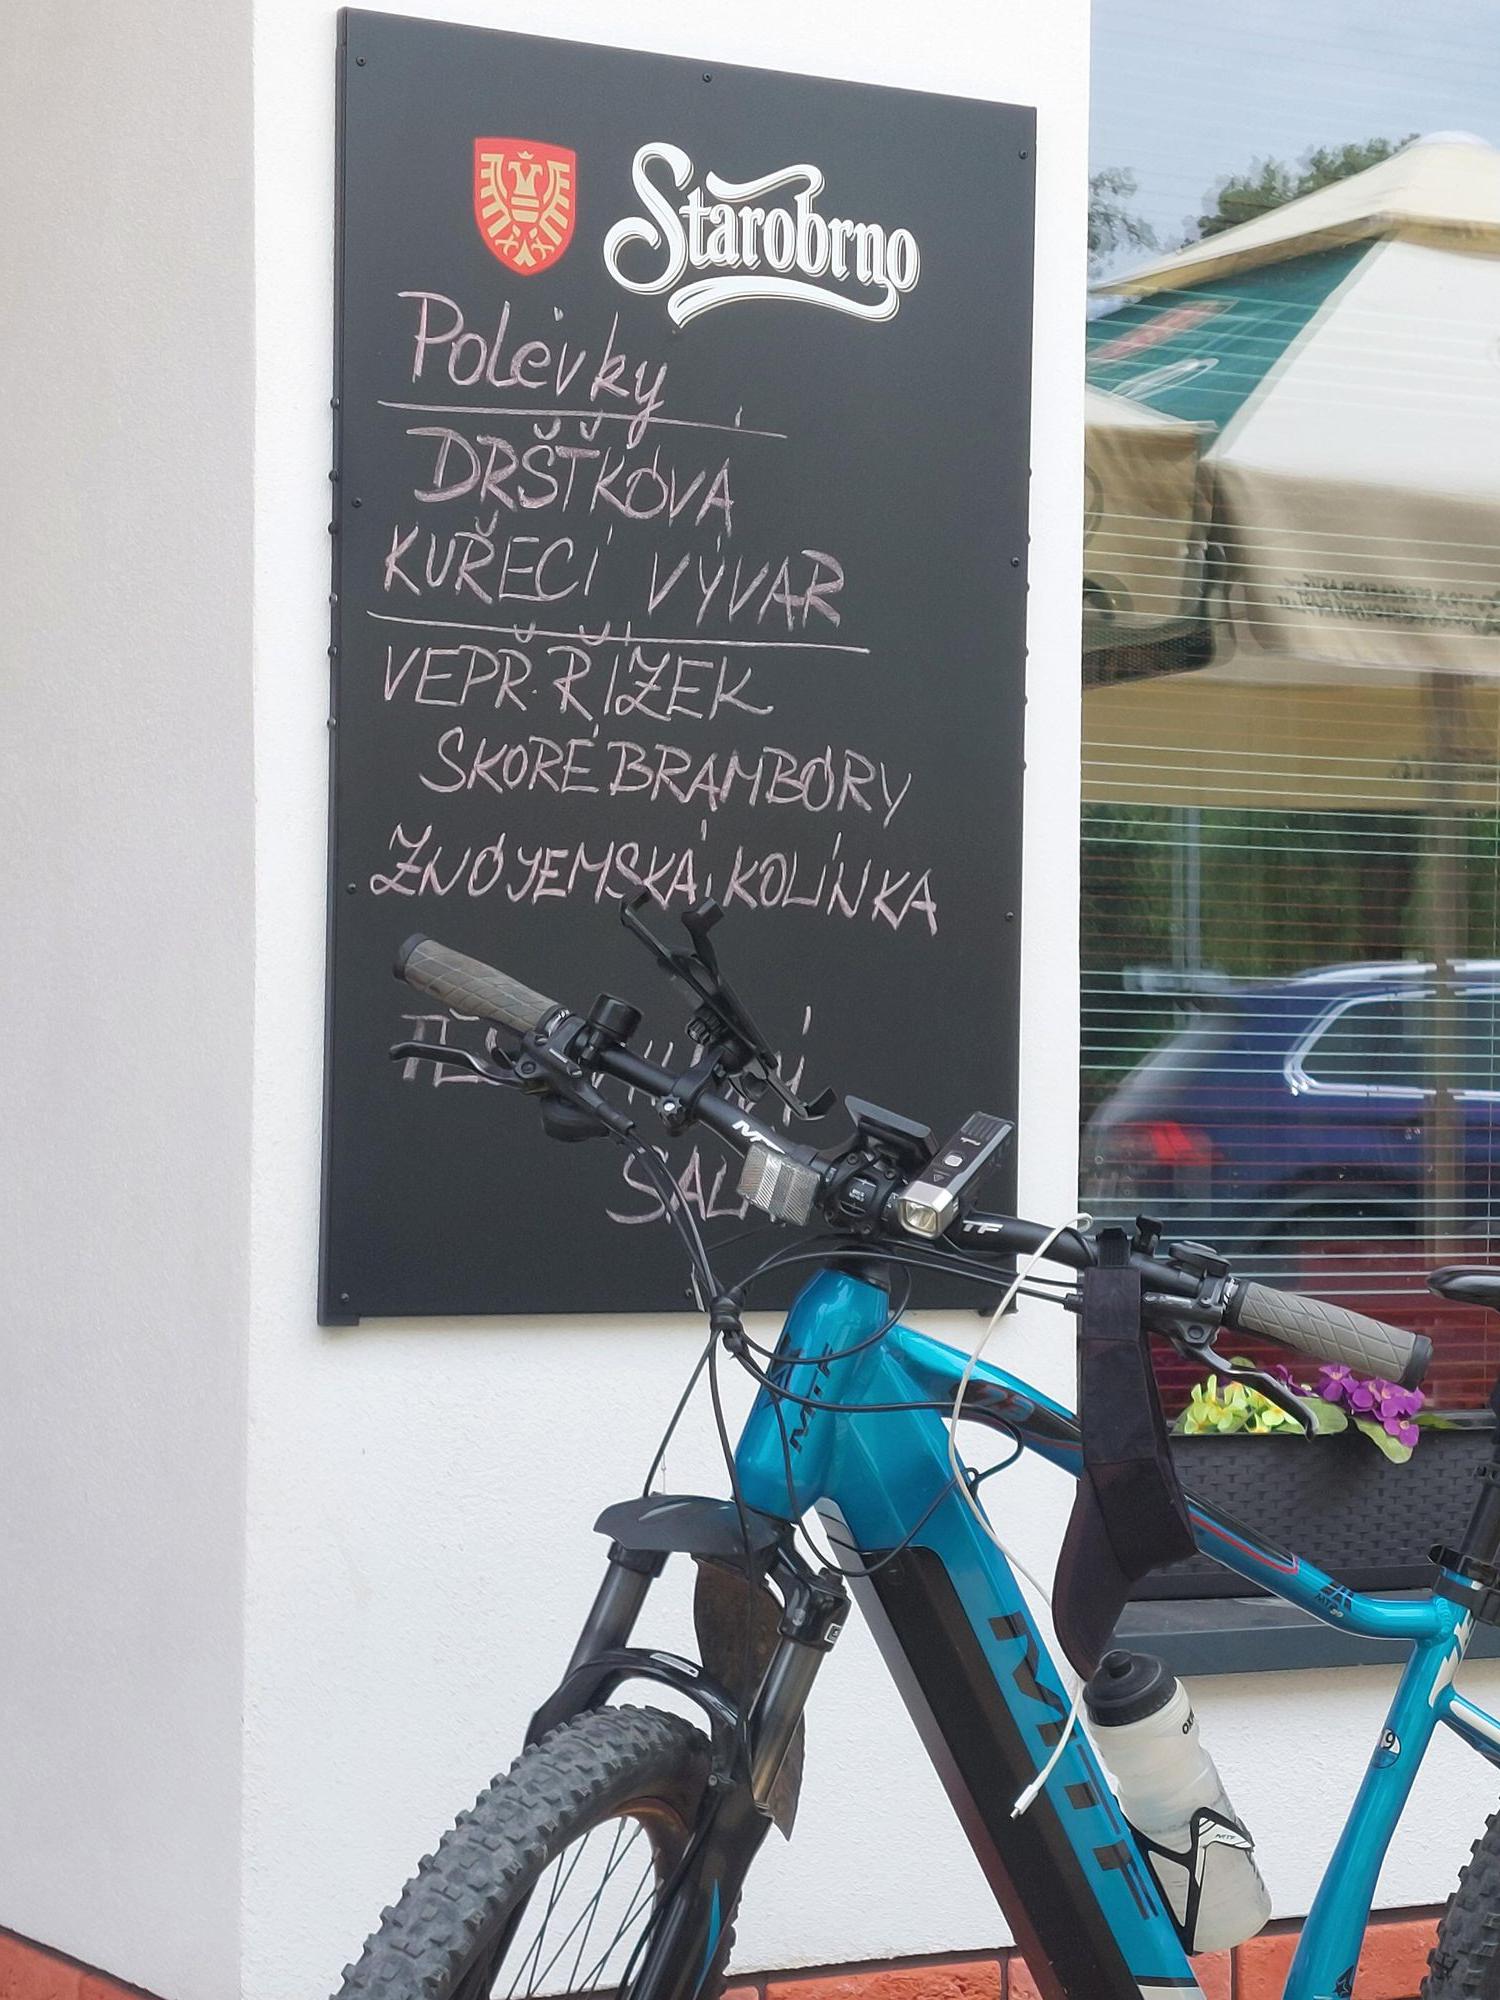 Starobrno
Polévky
DRŠŤKOVÁ
KUŘECÍ VÝVAR
VEPŘ. ŘÍZEK
SKORÉ BRAMBORY
ZNOJEMSKÁ, KOLÍNKA
MTF
TF
MTF
MTF
19
MTF